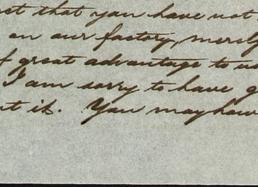 that you have not
on our factory, merely
great advantage to us
I am sorry to have
it. You may have